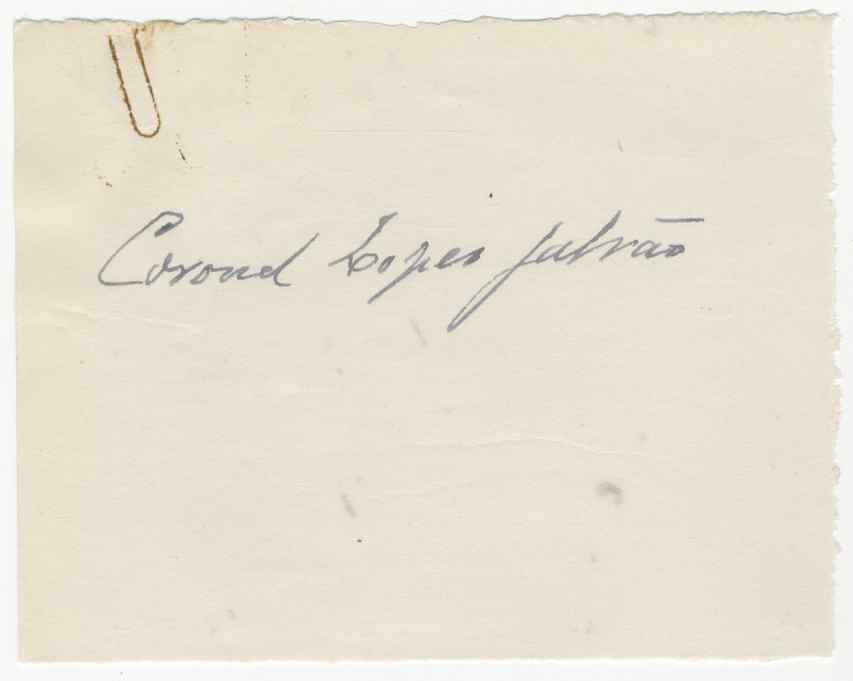 Coronel Lopes Galvão